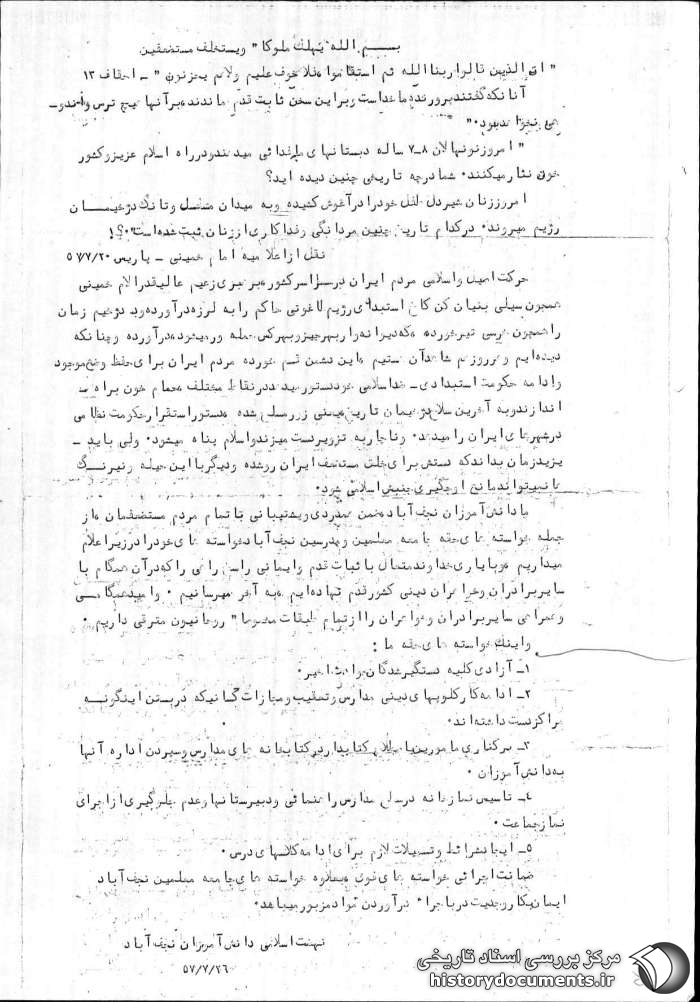 بسم الله یهلك ملوكا" ویستخلف مستضعفین
"ان الذین قالوا ربنا الله ثم استقاموا فلا خوف علیهم ولا هم یحزنون" ـ احقاف ۱۳
آنانکه گفتند پروردگار ما خداست و براین سخن ثابت قدم ماندند بر آنها هیچ ترس واندو ـ
هی نخواهد بود۰"
"امروز نونهالان ۸ـ۷ ساله دبستانهای ما فدائی میدهند و در راه اسلام عزیز و کشور
خون نثار میکنند۰ شما درچه تاریخی چنین دیده اید؟
امروز زنان شیردل طفل خود را در آغوش کشیده و به میدان مسلسل و تانك دژخیمان
رژیم میروند۰ در کدام تاریخ چنین مردانگی و فداکاری از زنان ثبت شده است۰؟!
نقل از اعلامیه امام خمینی ـ پاریس ۵۷/۷/۲۰
حرکت اصیل و اسلامی مردم ایران در سراسر کشور به رهبری زعیم عالیقدر امام خمینی
همچون سیلی بنیان کن کاخ استبدادی رژیم طاغوتی حاکم را به لرزه درآورده و دژخیم زمان
را همچون خرسی تیرخورده که دیوانه وار بهرچیز و بهرکس حمله ور میشود درآورده و چنانکه
دیده ایم و هر روز هم شاهد آن هستیم این دشمن قسم خورده مردم ایران برای حفظ وضع موجود
و ادامه حکومت استبدادی ـ ضد اسلامی خود دستور میدهد در نقاط مختلف حمام خون براه
اندازند و به آخرین سلاح دژخیمان تاریخ یعنی زور مسلح شده دستور استقرار حکومت نظامی
در شهرهای ایران را میدهد۰ و ناچار به تزویر دست میزند و اسلام پناه میشود۰ ولی باید ـ
یزید زمان بداند که دستش برای خلق مستضعف ایران رو شده و دیگر با این حیله و نیرنگ
ها نمیتواند مانع اوجگیری جنبش اسلامی شود۰
ما دانش آموزان نجف آباد ضمن همدردی و پشتیبانی با تمام مردم مستضعفمان از
جمله خواسته های حقه جامعه معلمین و مدرسین نجف آباد خواسته های خود را در زیر اعلام
میداریم و با یاری خداوند متعال با ثبات قدم وایمانی راسخ راهی را که در آن همگام با
سایر برادران و خواهران دینی کشور قدم نهاده ایم به آخر میرسانیم ۰ و امید همگامی
و همراهی سایر برادران و خواهران را از تمام طبقات مخصوصا" روحانیون مترقی داریم ۰
و اینك خواسته های حقه ما :
۱ـ آزادی کلیه دستگیرشدگان حوادث اخیر۰
۲ـ ادامه کار کلوبهای دینی مدارس و تعقیب و مجازات کسانیکه در بستن اینگونه
مراکز دست داشته اند۰
۳ـ برکناری مامورین باصطلاح کتابدار در کتابخانه های مدارس و سپردن اداره آنها
به دانش آموزان ۰
۴ـ تاسیس نمازخانه در سطح مدارس راهنمائی و دبیرستانها و عدم جلوگیری از اجرای
نماز جماعت۰
۵ـ ایجاد شرائط و تسهیلات لازم برای ادامه کلاسهای درس۰
ضمانت اجرائی خواسته های فوق بعلاوه خواسته های جامعه معلمین نجف آباد
ایمان بکار و جدیت در باجرا درآوردن مواد مزبور میباشد۰
نهضت اسلامی دانش آموزان نجف آباد
۵۷/۷/۲۶
مرکز بررسی اسناد تاریخی
historydocuments.ir